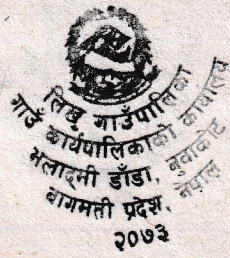 लिखु गाउँपालिका
गाउँ कार्यपालिकाको कार्यालय
भलाद्नी डाँडा, नुवाकोट
बागमती प्रदेश, नेपाल
२०७३